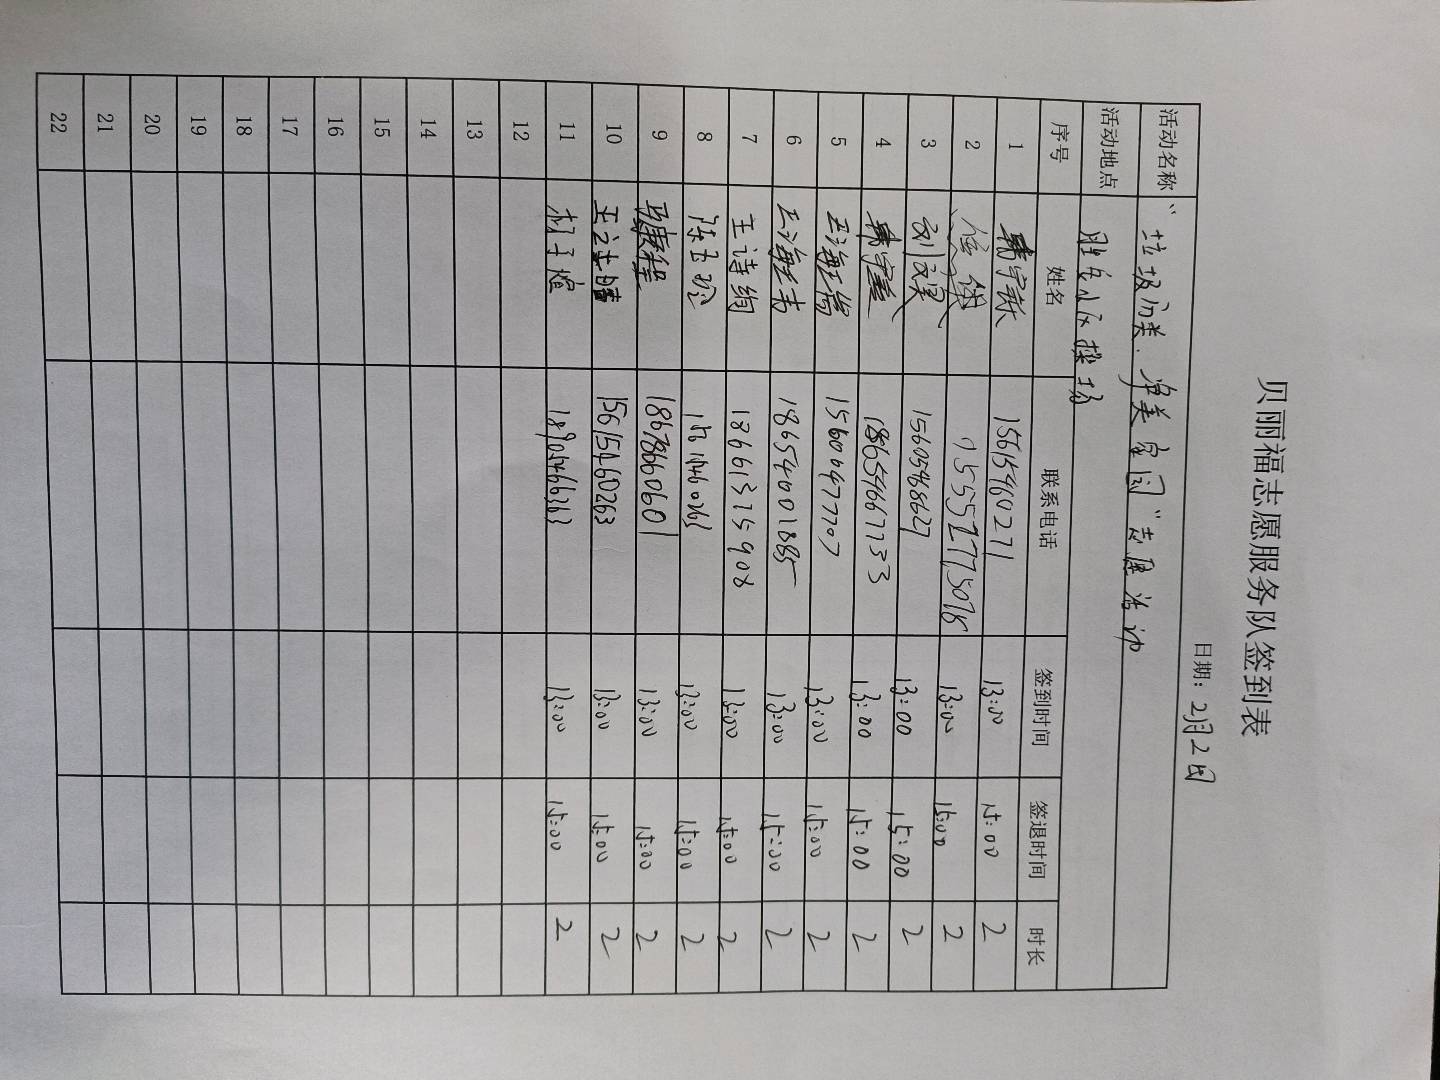 贝丽福志愿服务队签到表
日期：2月2日
活动名称 "垃圾分类，净美家园"志愿活动
活动地点 胜东小区操场
序号 姓名 联系电话 签到时间 签退时间 时长
1 15615460271 13:00 15:00 2
2 15551775078 13:00 15:00 2
3 15605468627 13:00 15:00 2
4 18654667733 13:00 15:00 2
5 15606477707 13:00 15:00 2
6 18654001885 13:00 15:00 2
7 王诗绚 18661375908 13:00 15:00 2
8 陈玉珍 13:00 15:00 2
9 18678660601 13:00 15:00 2
10 15615460263 13:00 15:00 2
11 18905466363 13:00 15:00 2
12
13
14
15
16
17
18
19
20
21
22